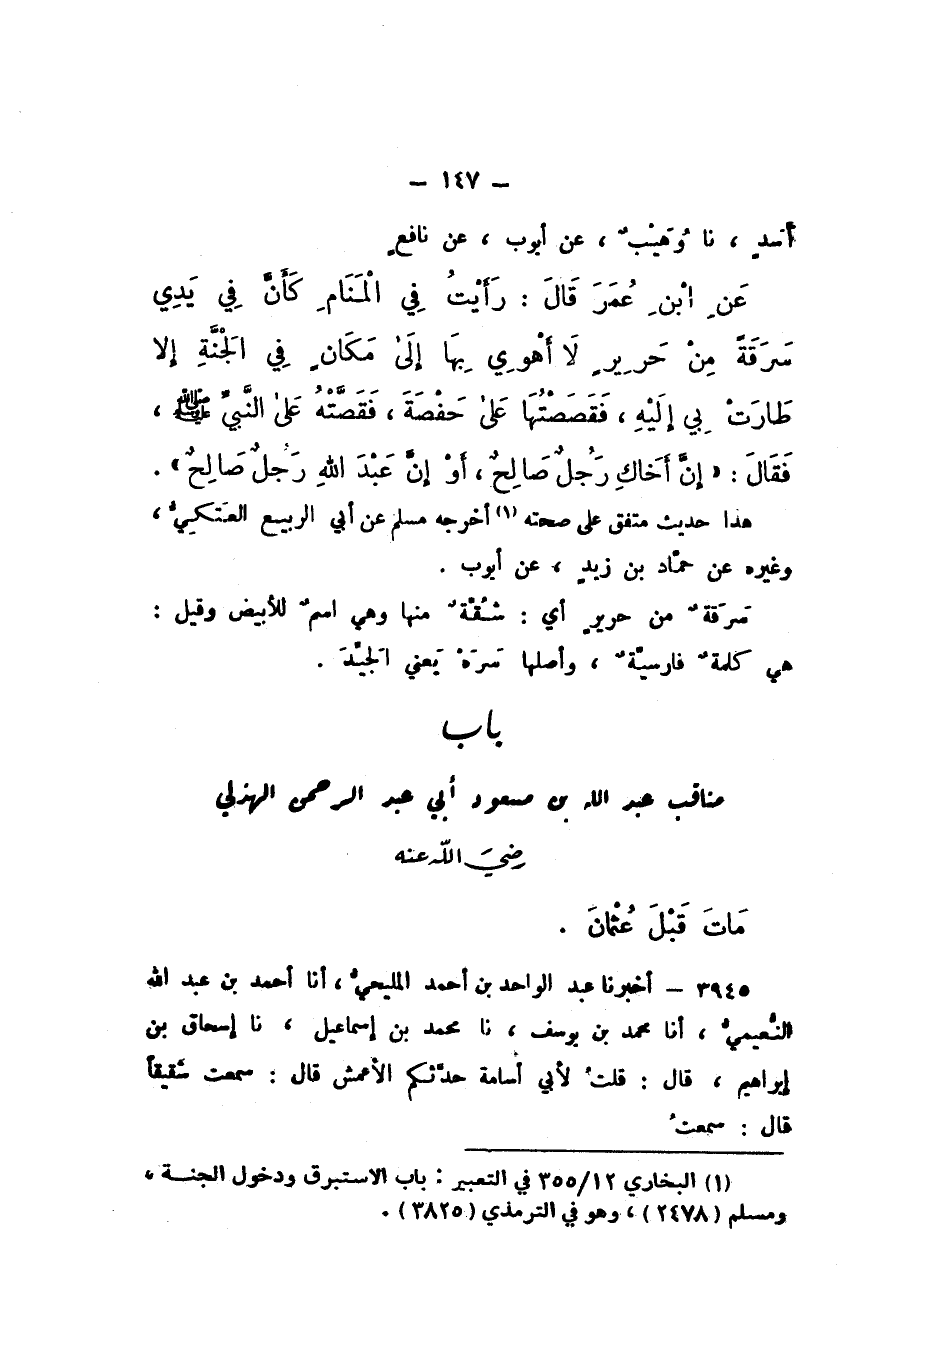 — ١٤٧ —
أسدٍ ، نا وُهَيْبٌ ، عن أيوب ، عن نافعٍ
عَنِ ابْنِ عُمَرَ قَالَ : رَأَيْتُ فِي الْمَنَامِ كَأَنَّ فِي يَدِي
سَرَقَةً مِنْ حَرِيرٍ لَا أَهْوِي بِهَا إِلَىٰ مَكَانٍ فِي الجَنَّةِ إلا
طَارَتْ بِي إِلَيْهِ ، فَقَصَصْتُهَا عَلىٰ حَفْصَةَ ، فَقَصَّتْهُ عَلىٰ النَّبِيِّ ﷺ ،
فَقَالَ : « إِنَّ أَخَاكِ رَجُلٌ صَالِحٌ ، أَوْ إِنَّ عَبْدَ اللهِ رَجُلٌ صَالِحٌ » .
هذا حديث متفق على صحته (١) أخرجه مسلم عن أبي الربيع العَتَكيُّ ،
وغيره عن حمَّاد بن زيدٍ ، عن أيوب .
سَرَقةٌ من حريرٍ أي : شُقَّةٌ منها وهي اسمٌ للأبيض وقيل :
هي كلمةٌ فارسيَّةٌ ، وأصلها سَرَهْ يَعني الجَيِّدَ .
باب
مناقب عبد الله بن مسعود أبي عبد الرحمن الهذلي
رضيَ اللّه عنه
مَاتَ قَبْلَ عُثْمَانَ .
٣٩٤٥ — أخبرنا عبد الواحد بن أحمد المليحيُّ ، أنا أحمد بن عبد الله
النُّعيميُّ ، أنا محمد بن يوسف ، نا محمد بن إسماعيل ، نا إسحاق بن
إبراهيم ، قال : قلتُ لأبي أسامة حدَّثكم الأعمش قال : سمعت شَقيقاً
قال : سمعتُ
(١) البخاري ٣٥٥/١٢ في التعبير : باب الاستبرق ودخول الجنـة ،
ومسلم (٢٤٧٨) ، وهو في الترمذي (٣٨٢٥) .